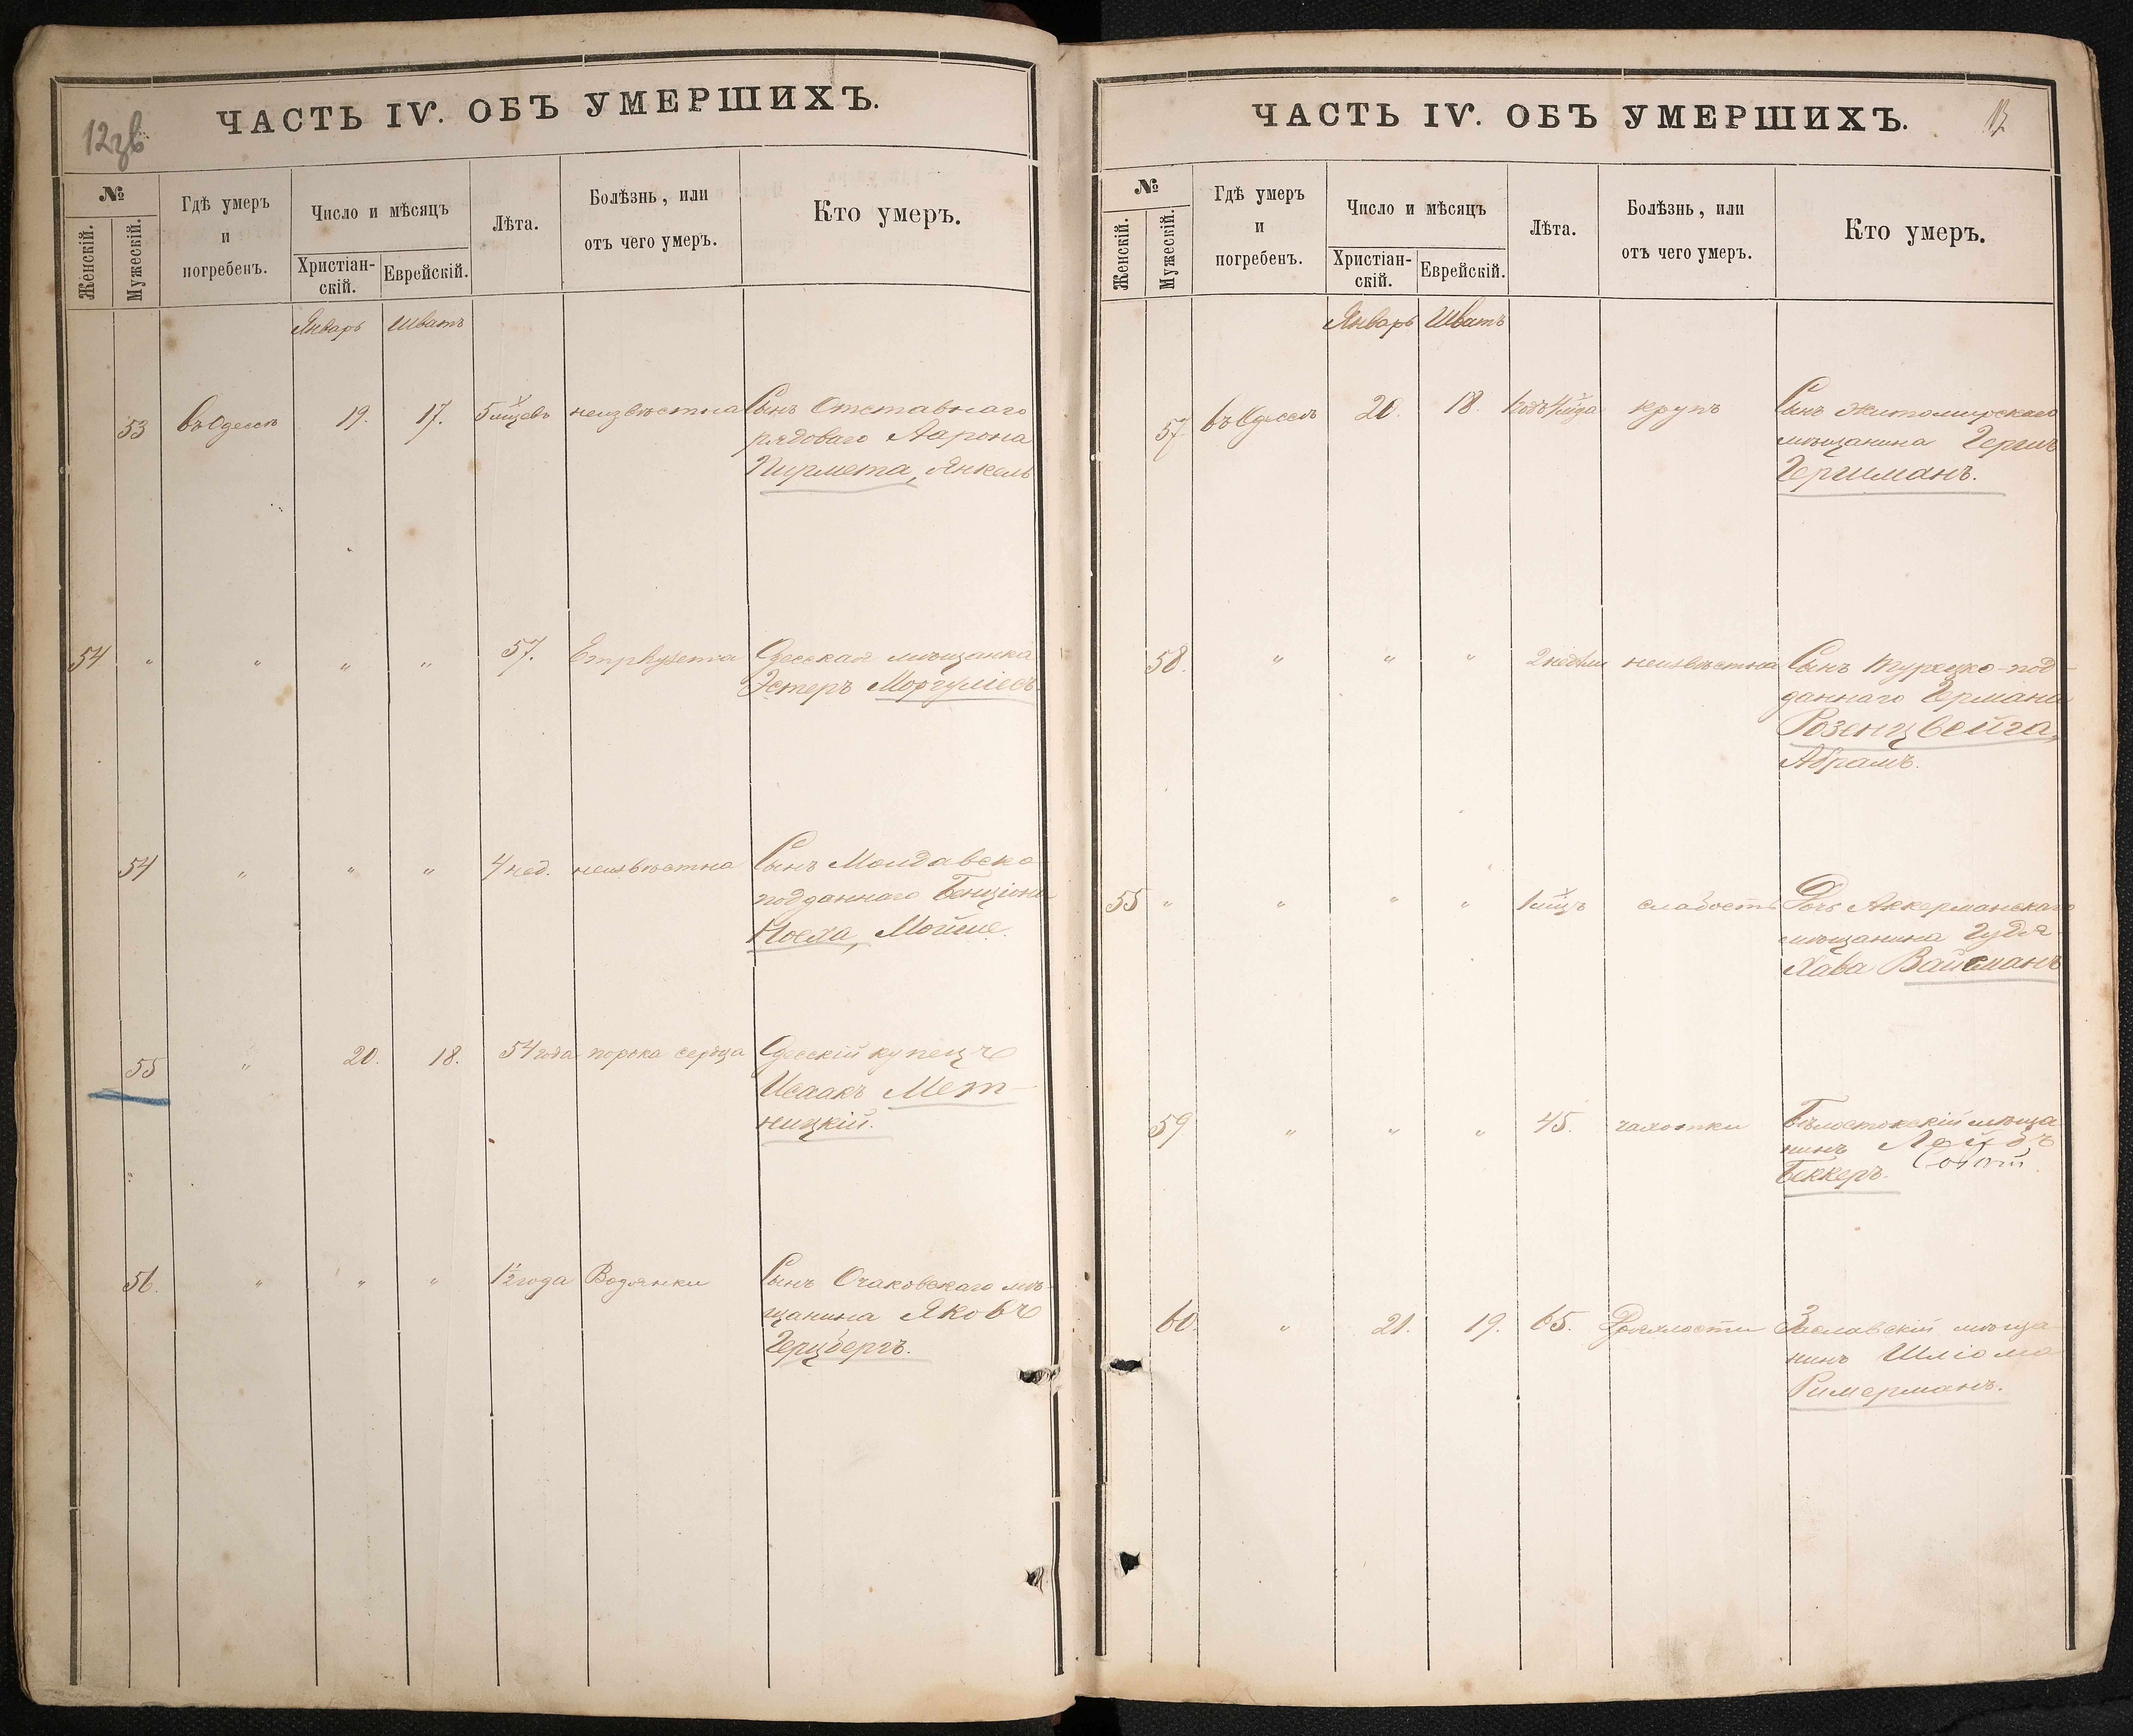 12зв
ЧАСТЬ IV. ОБЪ УМЕРШИХЪ.
№
Женскій.
Мужескій.
Гдѣ умеръ
и
погребенъ.
Число и мѣсяцъ
Христіан-
скій.
Еврейскій.
Лѣта.
Болѣзнь, или
отъ чего умеръ.
Кто умеръ.
Январь Шватъ
53 въ Одессѣ 19. 17. 5 мцевъ неизвѣстна Сынъ Отставнаго
рядоваго Аарона
Пирмета, Янкель
54 " " " " 57. Emphysema Одесская мѣщанка
Эстеръ Моргуліесъ.
54 " " " 4 нед. неизвѣстна Сынъ Молдавско
подданнаго Бенціона
Ноеха, Мойше.
55 " 20. 18. 54 года порока сердца Одесскій купецъ
Исаакъ Мет-
ницкій.
56. " " " 1½ года Водянки Сынъ Очаковскаго мѣ-
щанина Яковъ
Герцбергъ.
ЧАСТЬ IV. ОБЪ УМЕРШИХЪ.
№
Женскій.
Мужескій.
Гдѣ умеръ
и
погребенъ.
Число и мѣсяцъ
Христіан-
скій.
Еврейскій.
Лѣта.
Болѣзнь, или
отъ чего умеръ.
Кто умеръ.
Январь Шватъ
57. въ Одессѣ 20. 18. 1 годъ 4 мца крупъ Сынъ Житомирскаго
мѣщанина Гершъ
Гершманъ.
58. " " " 2 недѣли неизвѣстна Сынъ турецко-под-
даннаго Германа
Розенцвейга,
Абрамъ.
55 " " " " 1 мцъ слабость Дочь Аккерманскаго
мѣщанина Гудя-
Хава Вайсманъ
59 " " " 45. чахотки Бѣлостокскій мѣща
нинъ Лейбъ
Беккеръ.
60. " 21. 19. 65. Дряхлости Заславскій мѣща
нинъ Шліома
Римерманъ.